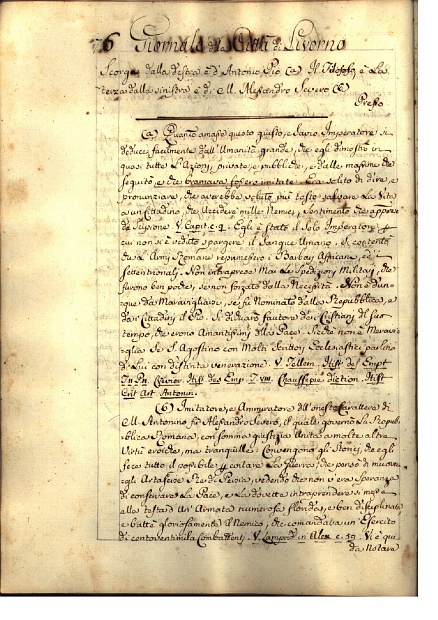 76 Giornale della Città di Livorno
Scorge dalla destra è d'Antonio Pio (a) Il Filosofo, e La
terza dalla sinistra è di M. Alessandro Severo (b)
Presso
(a) Quanto amasse questo giusto, e savio Imperatore si
deduce facilmente dall'Umanità grande, che egli dimostrò in
quasi tutte l'Azioni, private, e pubbliche, e dalle massime che
seguitò, e che bramava fossero imitate. Era solito di dire, e
pronunziare, che averebbe voluto più tosto salvare la Vita
a un Cittadino, che uccidere mille Nemici, Sentimento che apprese
da Scipione V. Capit. c. 9. Egli è stato il Solo Imperatore
cui non si è veduto spargere il Sangue Umano. Si contentò
che l'Armi Romane reprimessero i Barbari Affricani, ed i
Settentrionali. Non intraprese Mai le Spedizioni Militari, che
furono ben poche, se non forzato dalla Necessità. Non è dun-
que da Maravigliarsi, se fu Nominato dalla Repubblica, e
da i Cittadini il Pio. Si dichiarò fautore dei Cristiani del suo
tempo, che erono Amantissimi della Pace. Sicchè non è Meravi-
glia se S. Agostino con Molti Scrittori Ecclesiastici parlino
di Lui con distinta venerazione. V. Tillem. Hist. des Emp.
Crevier. Hist. des Emp. T. VIII. Chauffepié diction. Hist.
Crit. Art. Antonin.
(b) Imitatore, e Ammiratore dell'onesto Carattere di
M. Antonino fu Alessandro Severo, il quale governò la Repub-
blica Romana con somma giustizia unita a molte altre
Virtù eroiche, ma tranquille. Convengono gli Storici, che egli
fece tutto il possibile evitare la Guerra, che pensò di muover-
gli Artaserse Rè di Persia, vedendo che non v'era Speranza
di conservare la Pace, e La dovette intraprendere si messe
alla testa di un'Armata numerosa florida, e ben disciplinata
e battè gloriosamente il Nemico, che comandava un Esercito
di centoventimila Combattenti. V. Lamprid. in Alex. c. 59. Vi è qui
da Notare